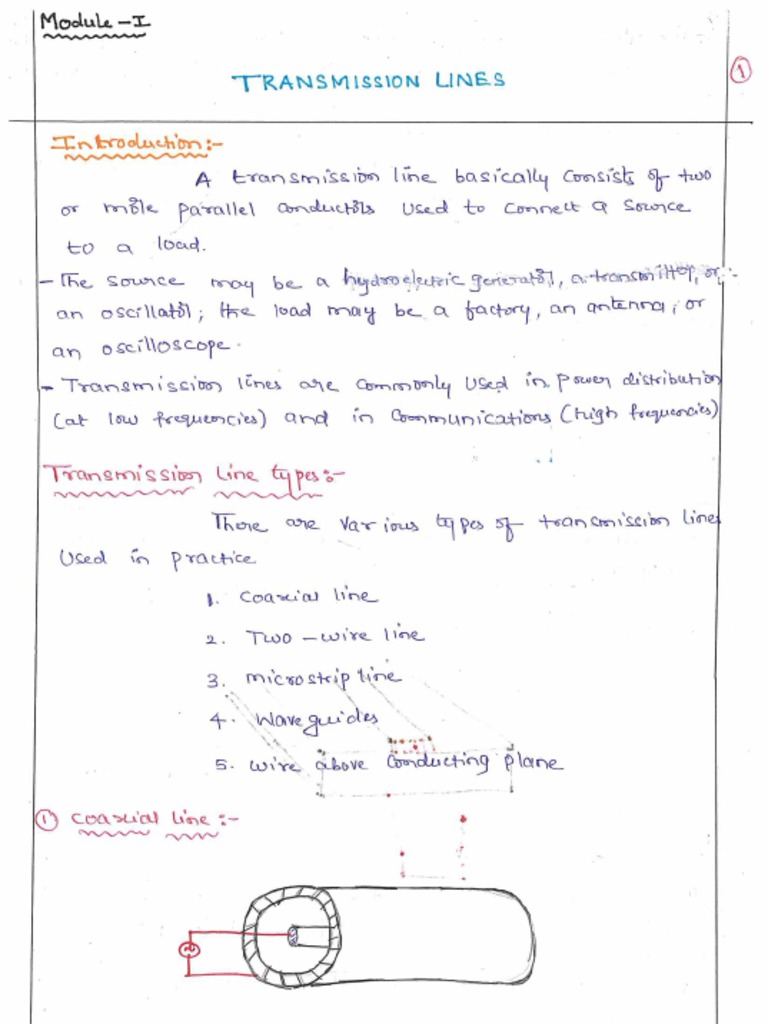 Module-I
TRANSMISSION LINES
1
Introduction:-
A transmission line basically consists of two
or more parallel conductors used to connect a source
to a load.
- The source may be a hydroelectric generator, a transmitter, or
an oscillator; the load may be a factory, an antenna, or
an oscilloscope.
- Transmission lines are commonly used in power distribution
(at low frequencies) and in communications (high frequencies)
Transmission Line types:-
There are various types of transmission lines
used in practice
1. Coaxial line
2. Two-wire line
3. microstrip line
4. Waveguides
5. wire above conducting plane
1 coaxial line:-